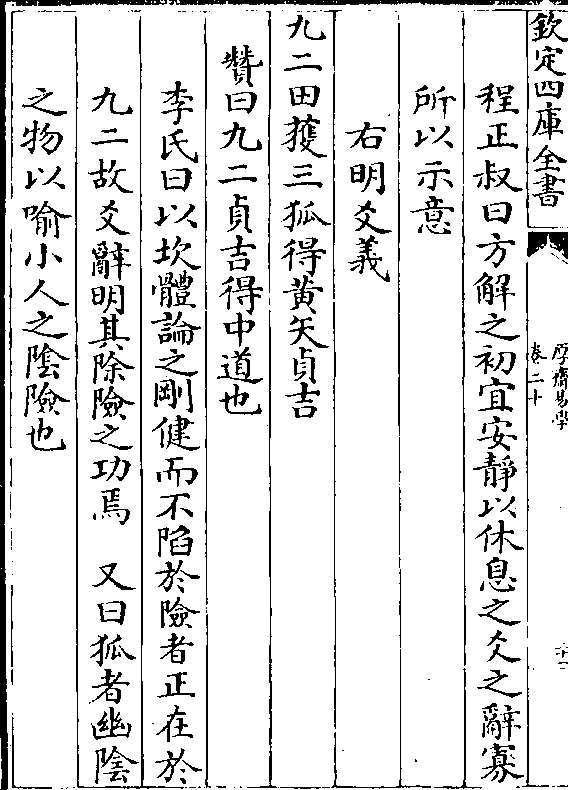 欽定四庫全書
厚齋易學
卷二十
程正叔曰方解之初宜安靜以休息之爻之辭寡
所以示意
右明爻義
九二田獲三狐得黄矢貞吉
贊曰九二貞吉得中道也
李氏曰以坎體論之剛健而不陷於險者正在於
九二故爻辭明其除險之功焉　又曰狐者幽陰
之物以喻小人之陰險也